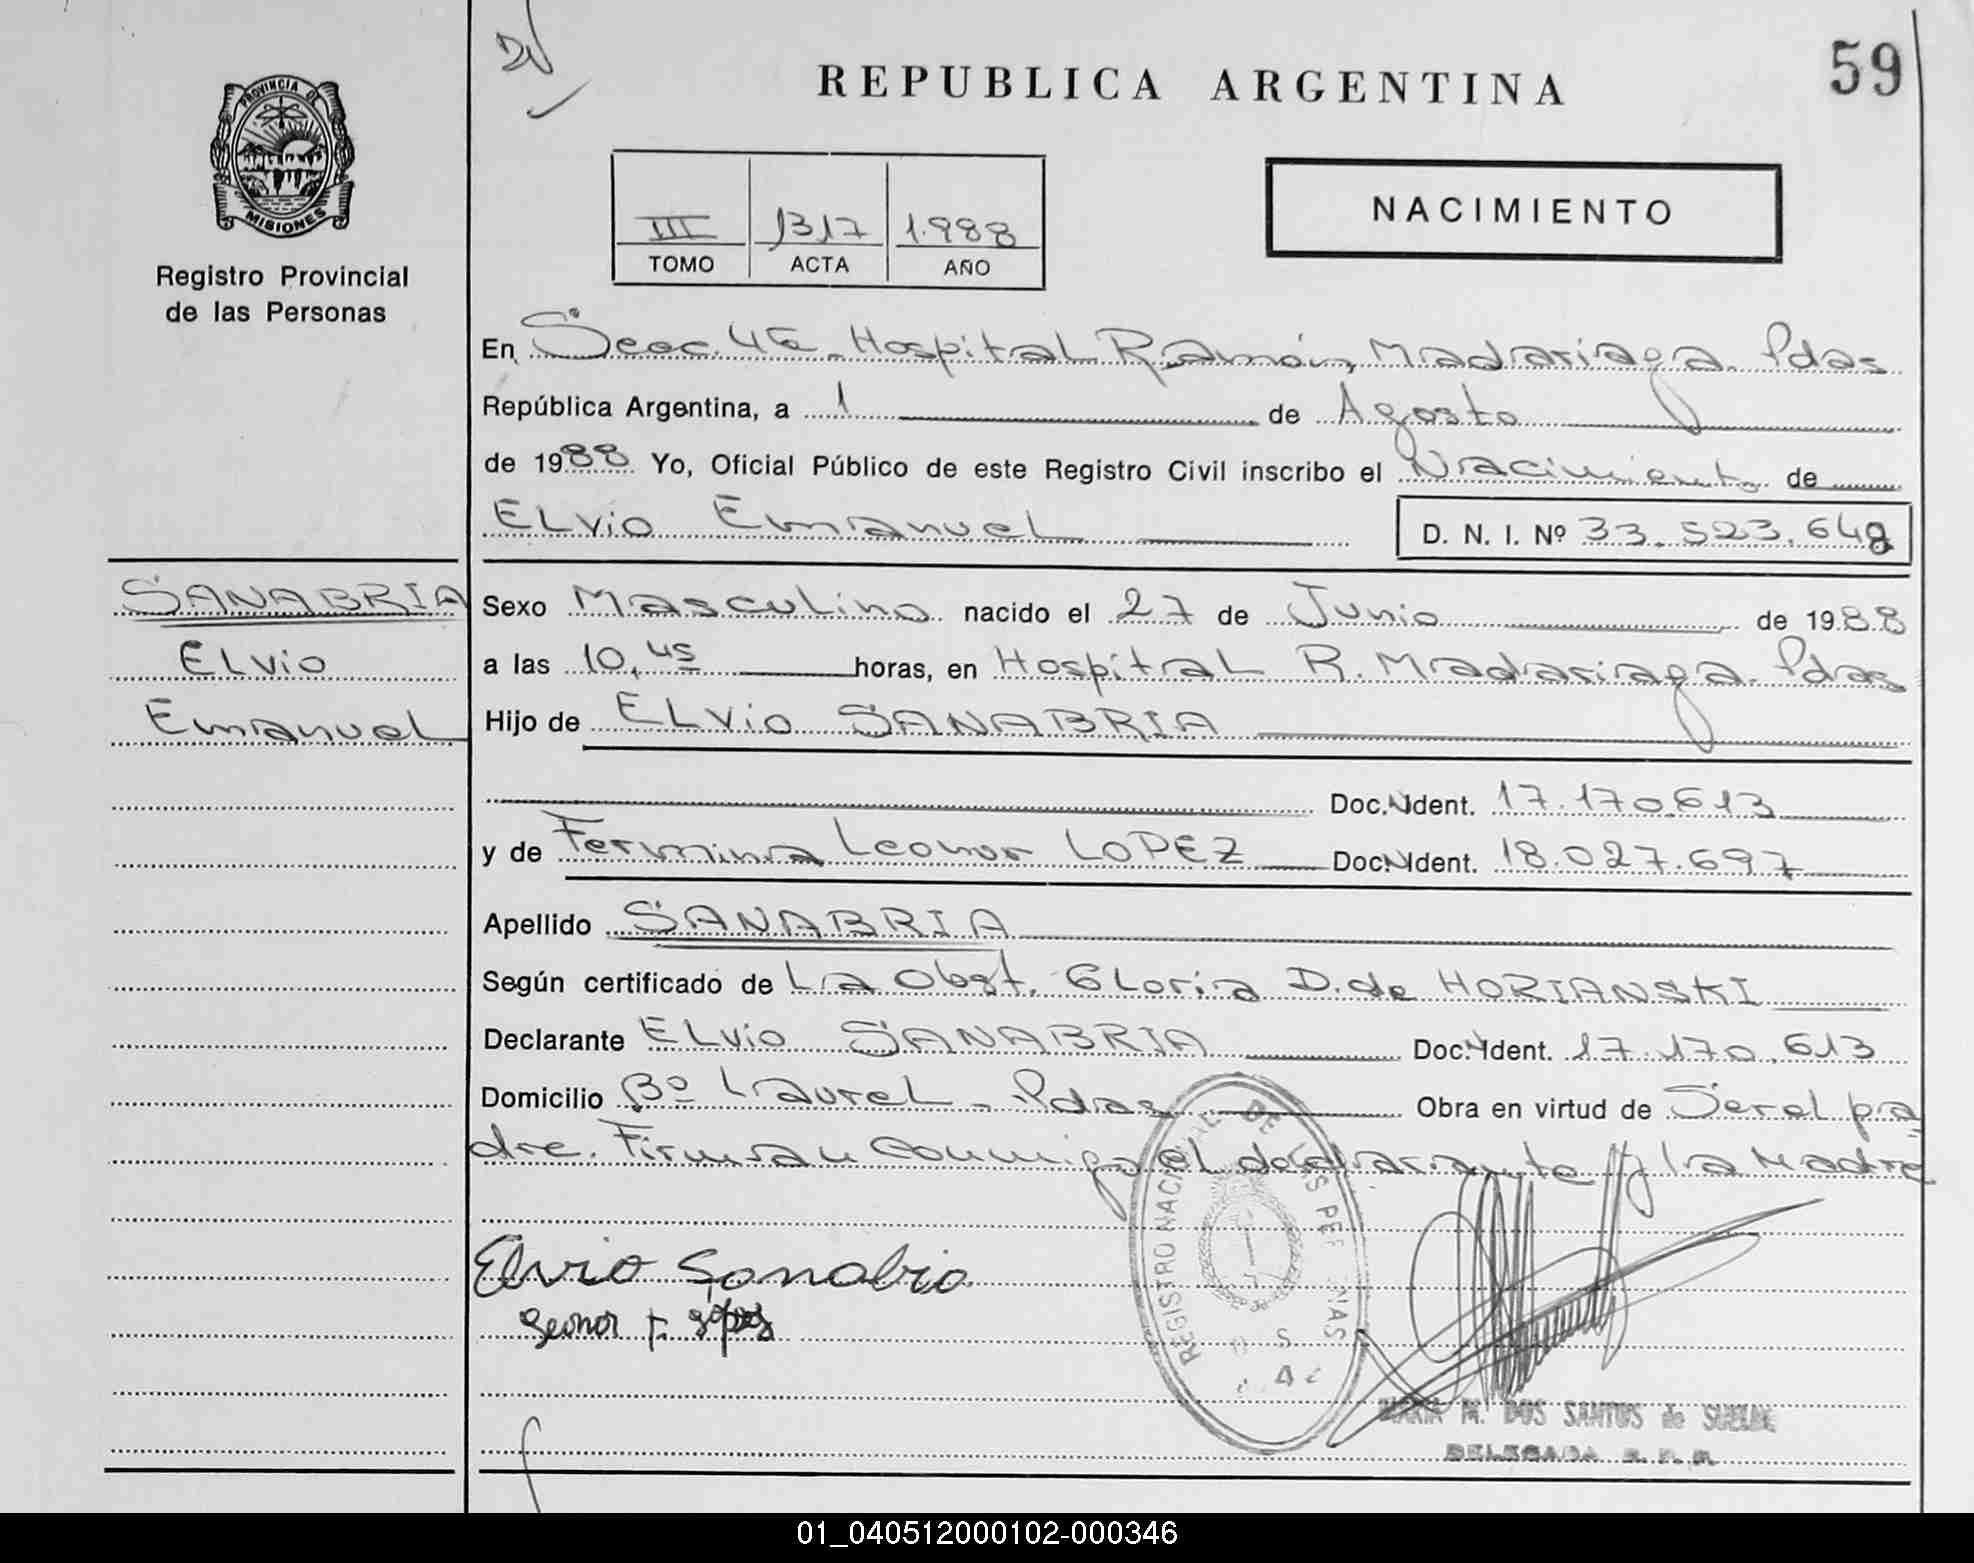 59
REPUBLICA ARGENTINA
PROVINCIA DE
MISIONES
Registro Provincial
de las Personas
III 1317 1.988
TOMO ACTA AÑO
NACIMIENTO
En Secc. 4ta Hospital Ramón Madariaga. Pdas
República Argentina, a 1 de Agosto
de 1988 Yo, Oficial Público de este Registro Civil inscribo el Nacimiento de
ELvio Emanuel D. N. I. Nº 33.523.648
SANABRIA
ELvio
Emanuel
Sexo Masculino nacido el 27 de Junio de 1988
a las 10,45 horas, en Hospital R. Madariaga. Pdas
Hijo de ELvio SANABRIA
Doc. Ident. 17.170.613
y de Fermina Leonor LOPEZ Doc. Ident. 18.027.697
Apellido SANABRIA
Según certificado de La Obst. Gloria D. de HORIANSKI
Declarante ELvio SANABRIA Doc. Ident. 17.170.613
Domicilio Bº Laurel - Pdas Obra en virtud de Ser el pa
dre. Firman Conmigo el declarante y la Madre
Elvio Sanabria
Leonor F. Lópes
REGISTRO NACIONAL DE LAS PERSONAS
MARIA M. DOS SANTOS de
DELEGADA R. P. P.
01_040512000102-000346